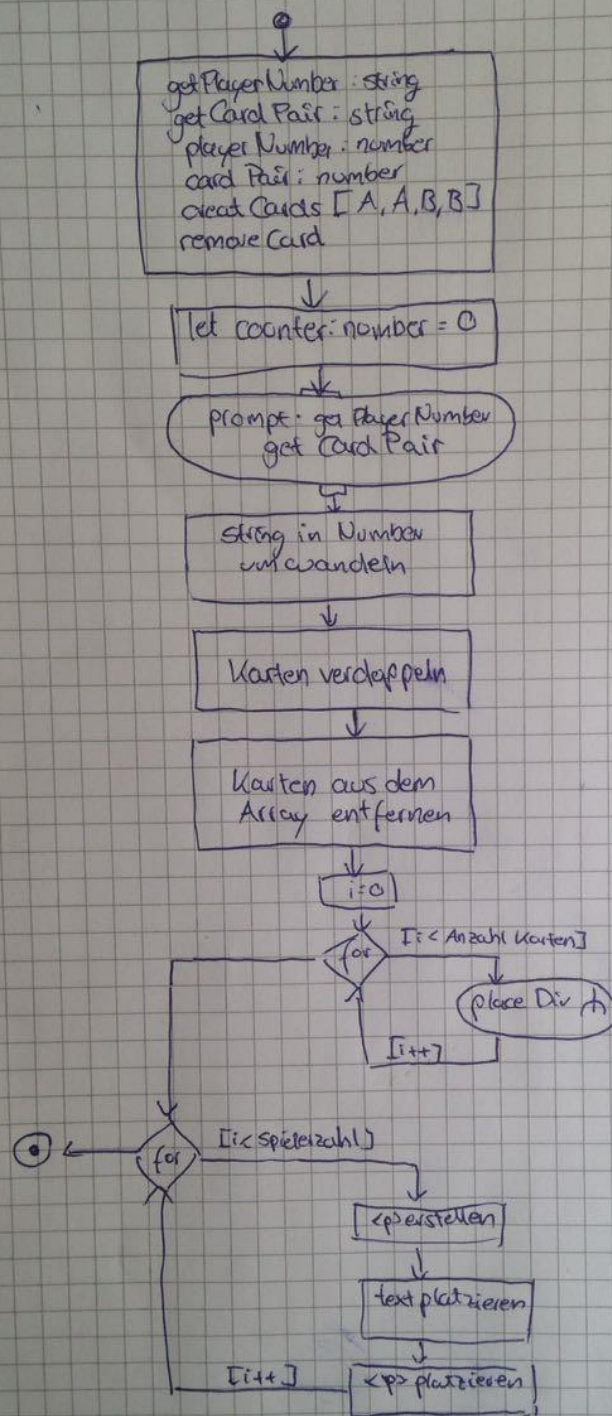 getPlayerNumber : string
getCard Pair : string
playerNumber : number
card Pair : number
creat Cards [A, A, B, B]
remove Card
let counter : number = 0
prompt: get PlayerNumber
get Card Pair
string in Number
umwandeln
Karten verdoppeln
Karten aus dem
Array entfernen
i=0
for
[i < Anzahl Karten]
place Div
[i++]
for
[i < Spielerzahl]
<p> erstellen
text platzieren
<p> platzieren
[i++]